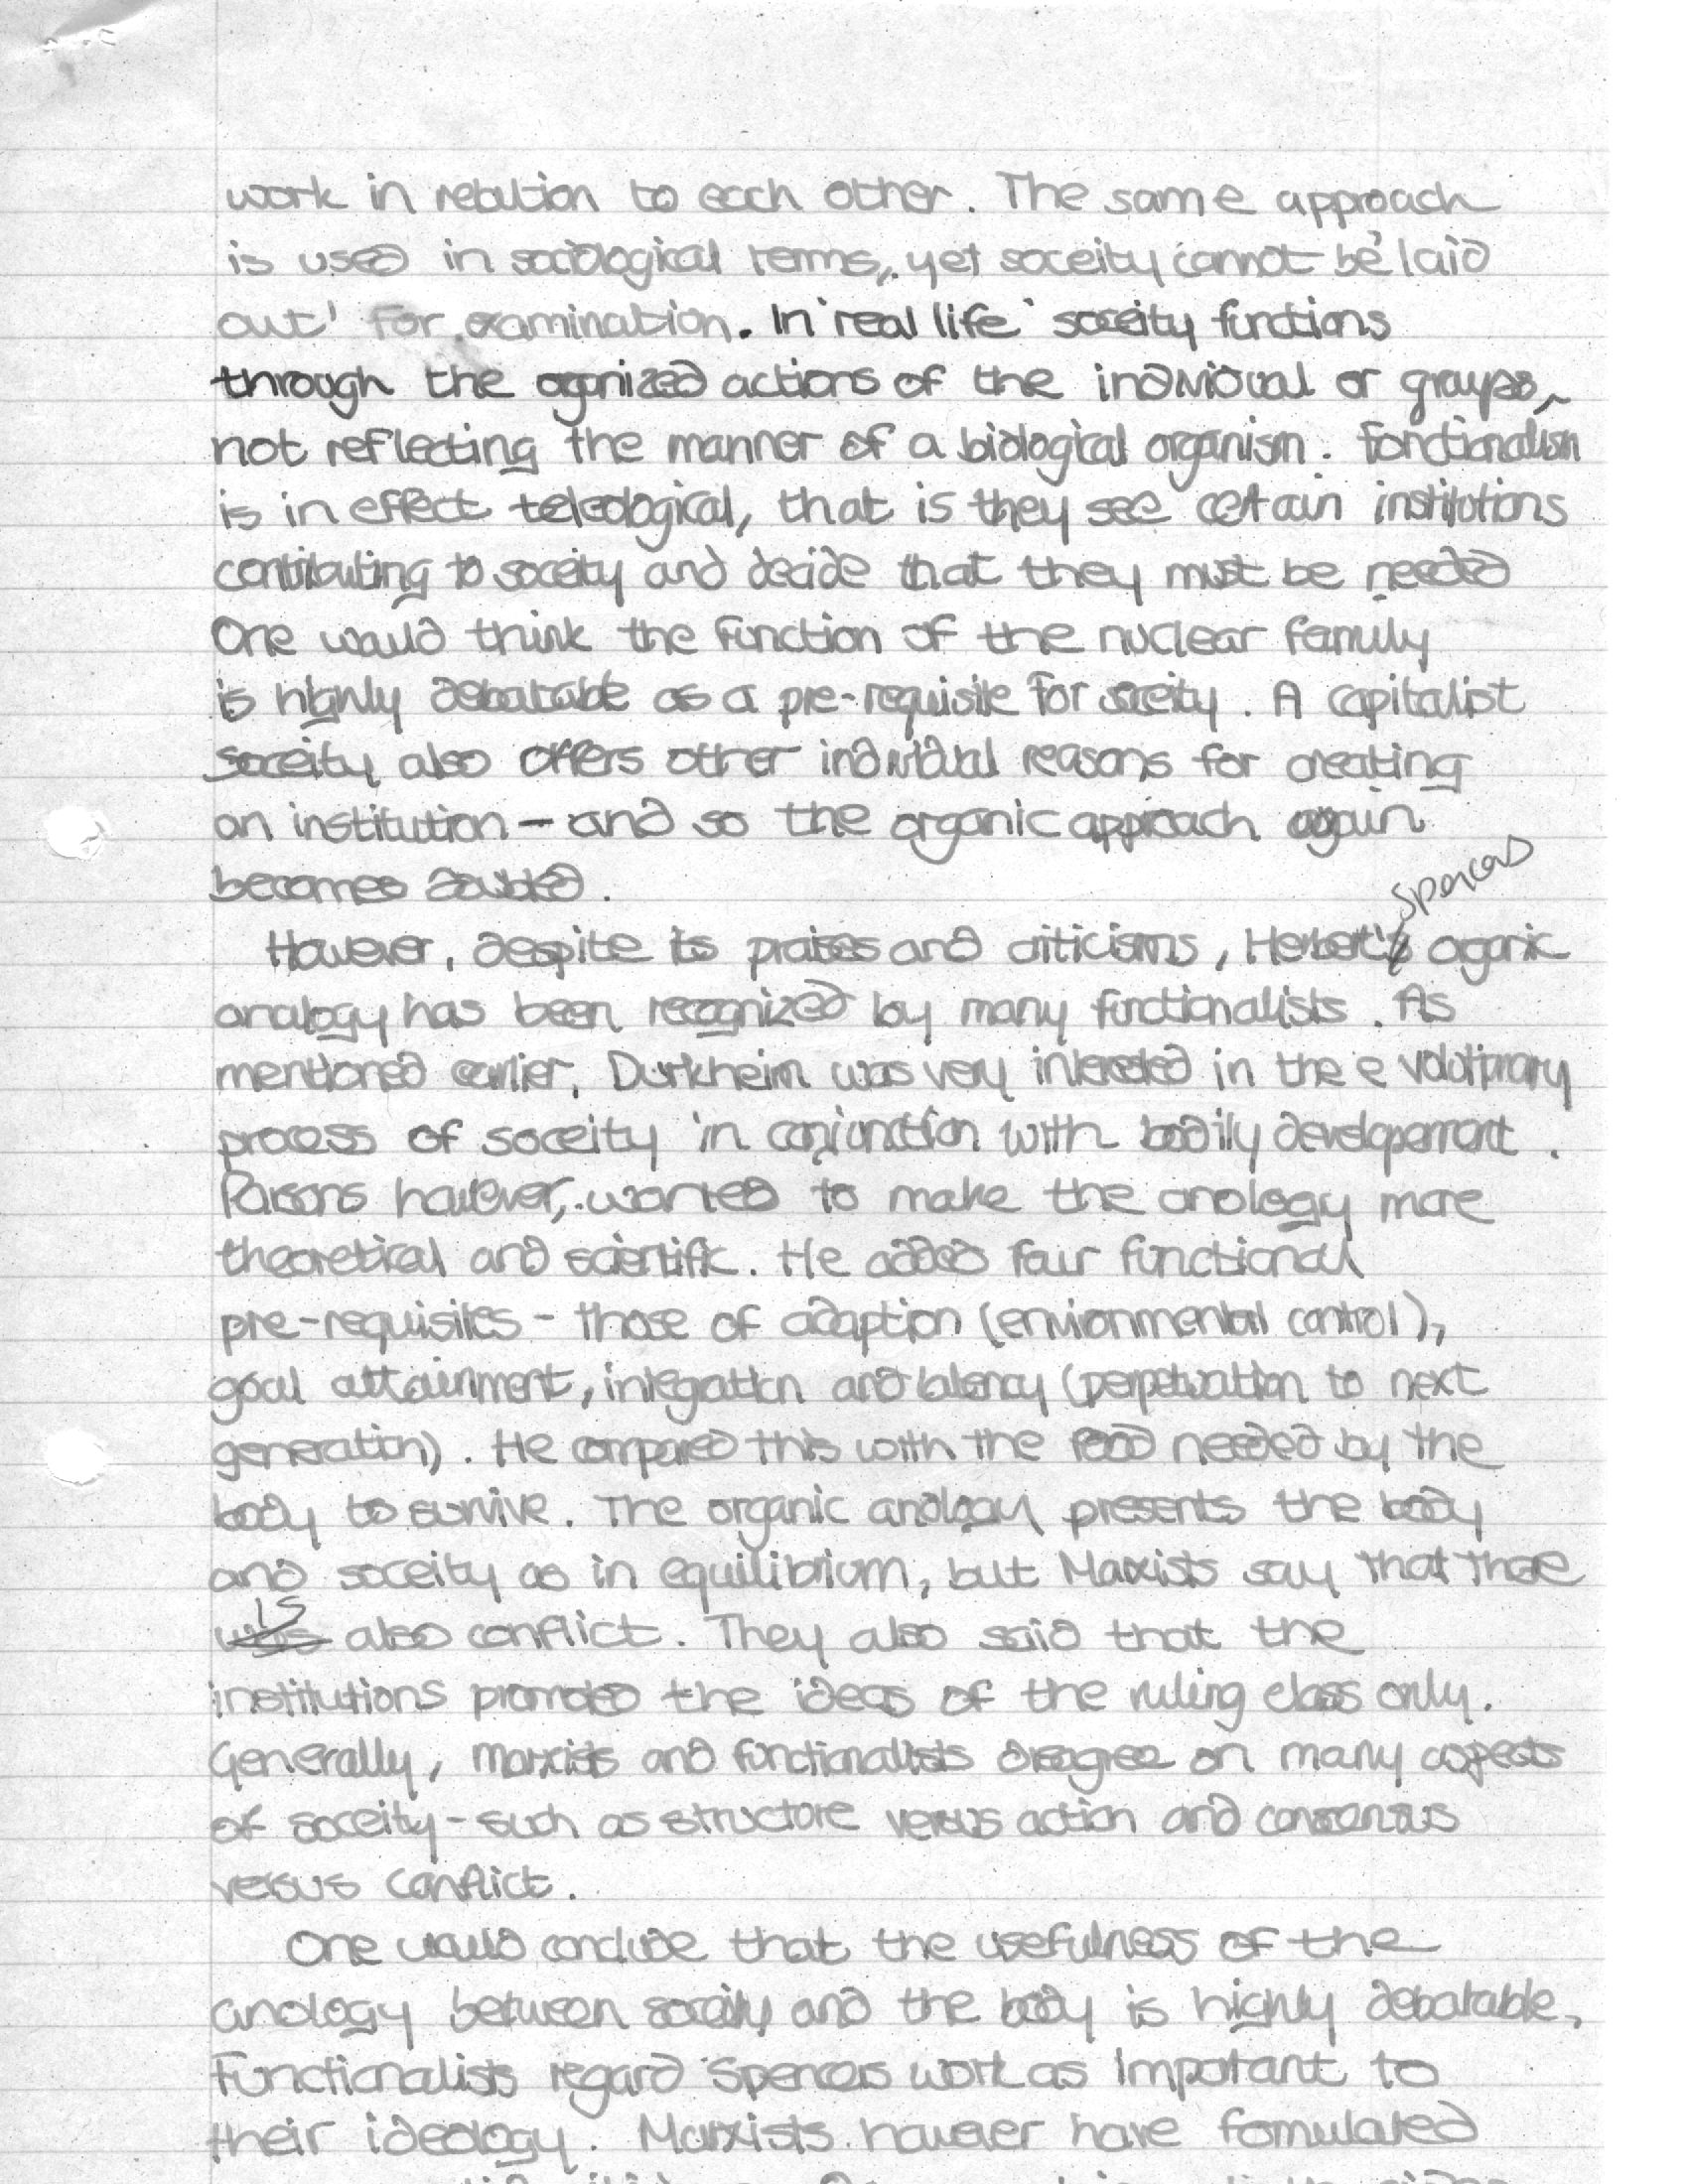 work in relation to each other. The same approach
is used in sociological terms, yet soceity cannot be 'laid
out' for examination. In 'real life' soceity functions
through the organized actions of the individual or groups,
not reflecting the manner of a biological organism. Functionalism
is in effect teleological, that is they see certain institutions
contributing to soceity and decide that they must be needed
One would think the function of the nuclear family
is highly debatable as a pre-requisite for soceity. A capitalist
soceity also offers other individual reasons for creating
an institution - and so the organic approach again
becomes doubted.
Spencers
However, despite its praises and criticisms, Herbert's organic
analogy has been recognized by many functionalists. As
mentioned earlier, Durkheim was very interested in the evolutionary
process of soceity in conjunction with bodily developement.
Parsons however, wanted to make the anology more
theoretical and scientific. He added four functional
pre-requisites - those of adaption (environmental control),
goal attainment, integration and latency (perpetuation to next
generation). He compared this with the food needed by the
body to survive. The organic anology presents the body
and soceity as in equilibrium, but Marxists say that there
is also conflict. They also said that the
institutions promoted the ideas of the ruling class only.
Generally, marxists and functionalists disagree on many aspects
of soceity - such as structure versus action and consensus
versus conflict.
One would conclude that the usefulness of the
anology between soceity and the body is highly debatable,
Functionalists regard Spencers work as important to
their ideology. Marxists however have fomulated